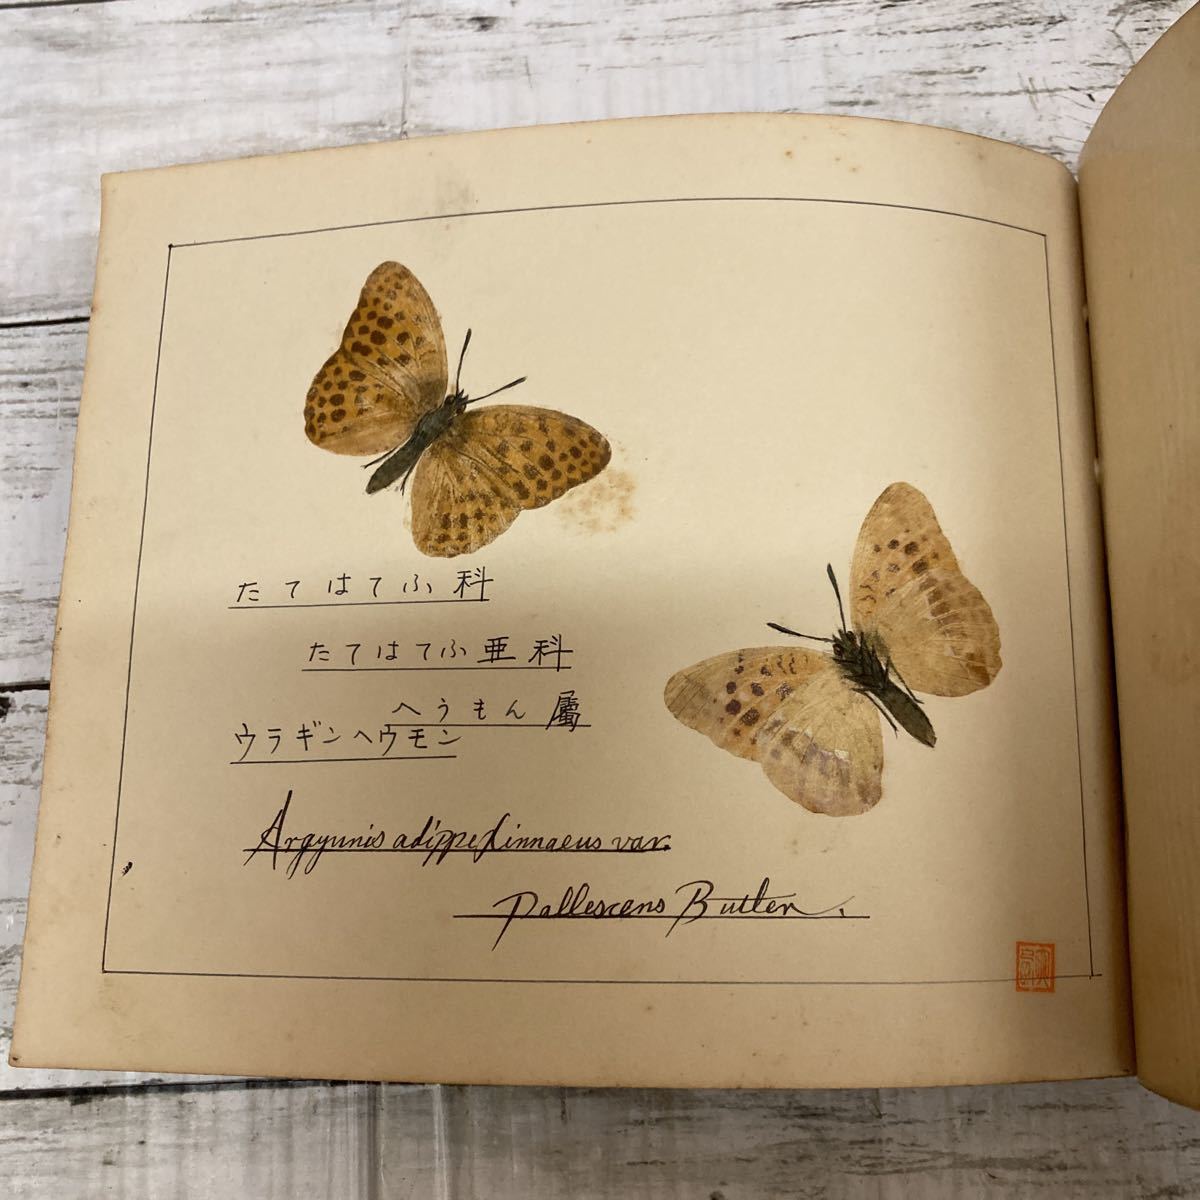 たてはてふ科
たてはてふ亜科
へうもん屬
ウラギンヘウモン
Argynnis adippe Linnaeus var.
Pallescens Butler.